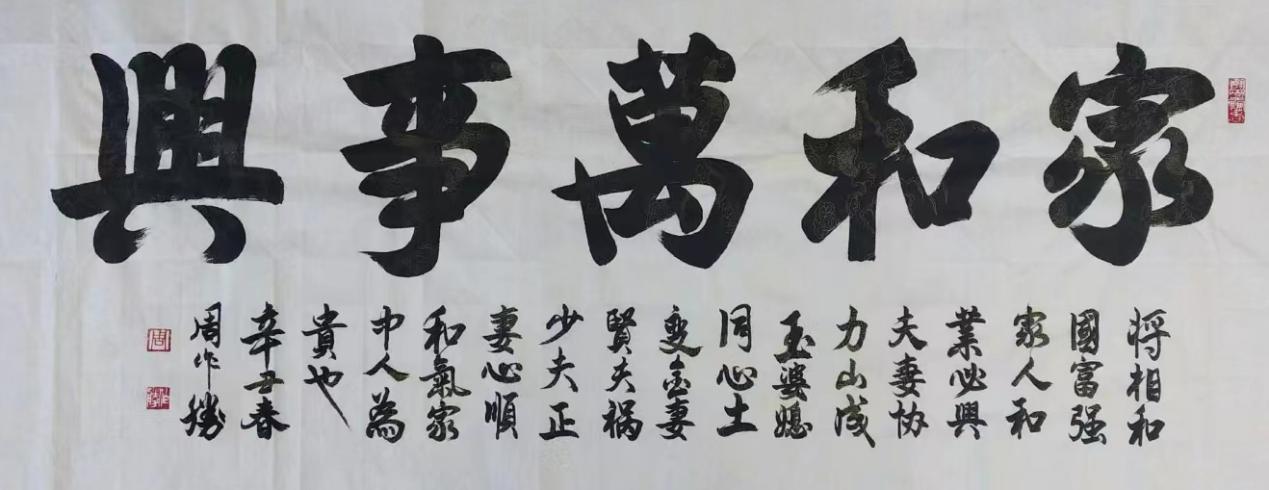 家和萬事興
將相和
國富强
家人和
業必興
夫妻协
力山成
玉婆媳
同心土
变金妻
賢夫祸
少夫正
妻心順
和氣家
中人為
貴也
辛丑春
周作勝
周